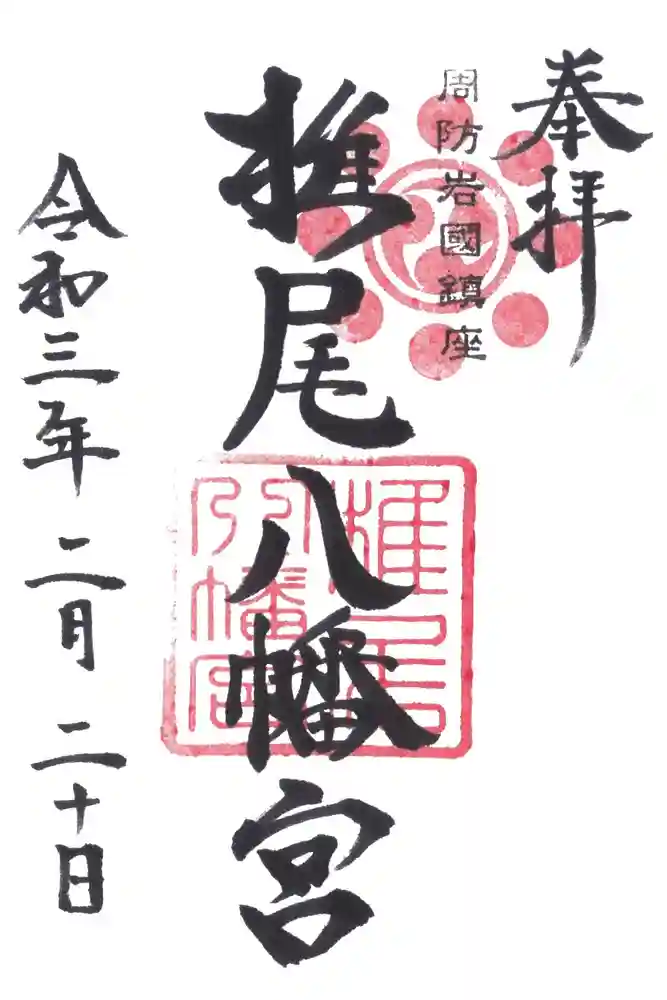 奉拝
周防岩國鎮座
椎尾八幡宮
椎尾
八幡宮
令和三年二月二十日